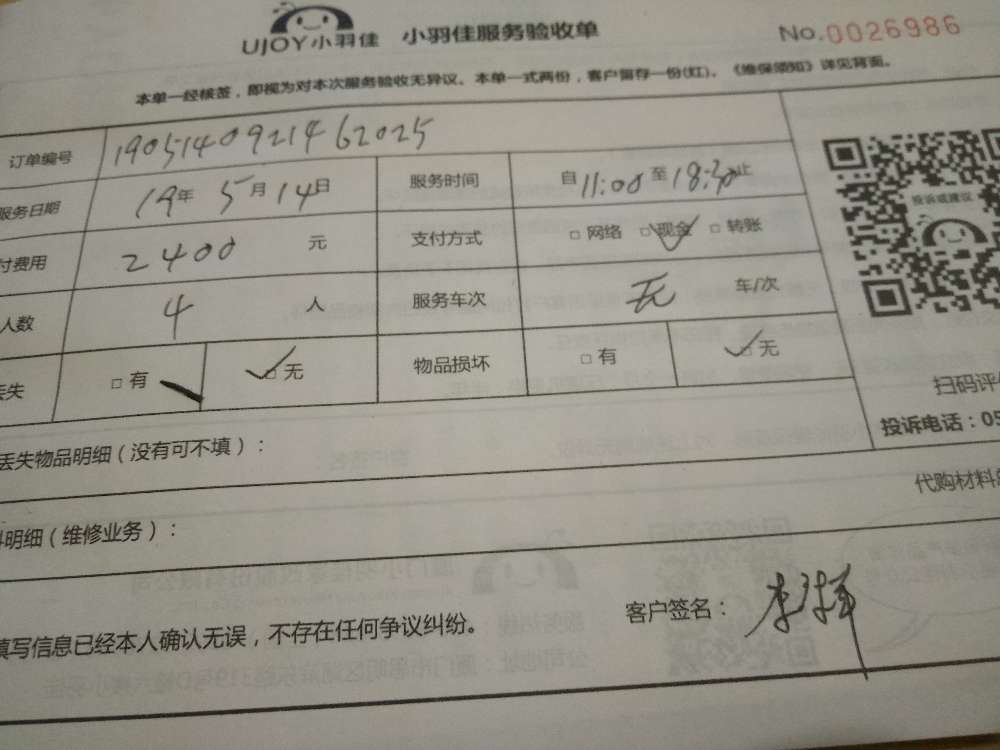 UJOY小羽佳 小羽佳服务验收单 No.0026986
本单一经核签，即视为对本次服务验收无异议。本单一式两份，客户留存一份(红)。《维保须知》详见背面。
订单编号 190514092146 2025
服务日期 19年 5月 14日 服务时间 自11:00至18:30止
投诉或建议
付费用 2400 元 支付方式 □ 网络 □ 现金 □ 转账
人数 4 人 服务车次 无 车/次
丢失 □ 有 □ 无 物品损坏 □ 有 □ 无
扫码评价
投诉电话：05
丢失物品明细（没有可不填）：
代购材料
料明细（维修业务）：
填写信息已经本人确认无误，不存在任何争议纠纷。 客户签名：